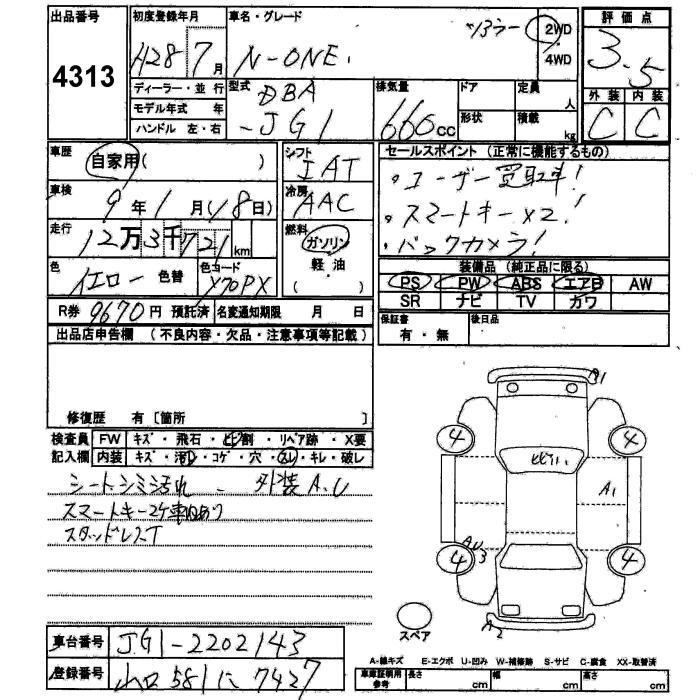 出品番号 4313
初度登録年月 H28 7月
車名・グレード N-ONE. ツアラー 2WD・4WD
評価点 3.5
外装 C 内装 C
ディーラー・並行
モデル年式 年
ハンドル 左・右
型式 DBA-JG1
排気量 660cc
ドア 形状
定員 人
積載 kg
車歴 自家用( )
シフト IAT
冷房 AAC
セールスポイント (正常に機能するもの)
・ユーザー買取車!
・スマートキー×2!
・バックカメラ!
車検 9年1月(18日)
走行 12万3千721km
燃料 ガソリン 軽油 ( )
色 イエロー 色替
色コード Y70PX
装備品 (純正品に限る)
PS PW ABS エアB AW
SR ナビ TV カワ
R券 9670円 預託済 名変通知期限 月 日
保証書 有・無
後日品
出品店申告欄 (不良内容・欠品・注意事項等記載)
修復歴 有 [箇所 ]
検査員記入欄
FW キズ・飛石・ヒビ割・リペア跡・X要
内装 キズ・汚レ・コゲ・穴・スレ・キレ・破レ
シートシミ汚れ 外装A.U
スマートキー2ケ車内あり
スタッドレスT
A1
4 4
ヒビワレ
A1
AU3
4 4
A2
スペア
車台番号 JG1-2202143
登録番号 山口 581 に 7427
A-線キズ E-エクボ U-凹み W-補修跡 S-サビ C-腐食 XX-取替済
車庫証明用参考 長さ cm 幅 cm 高さ cm